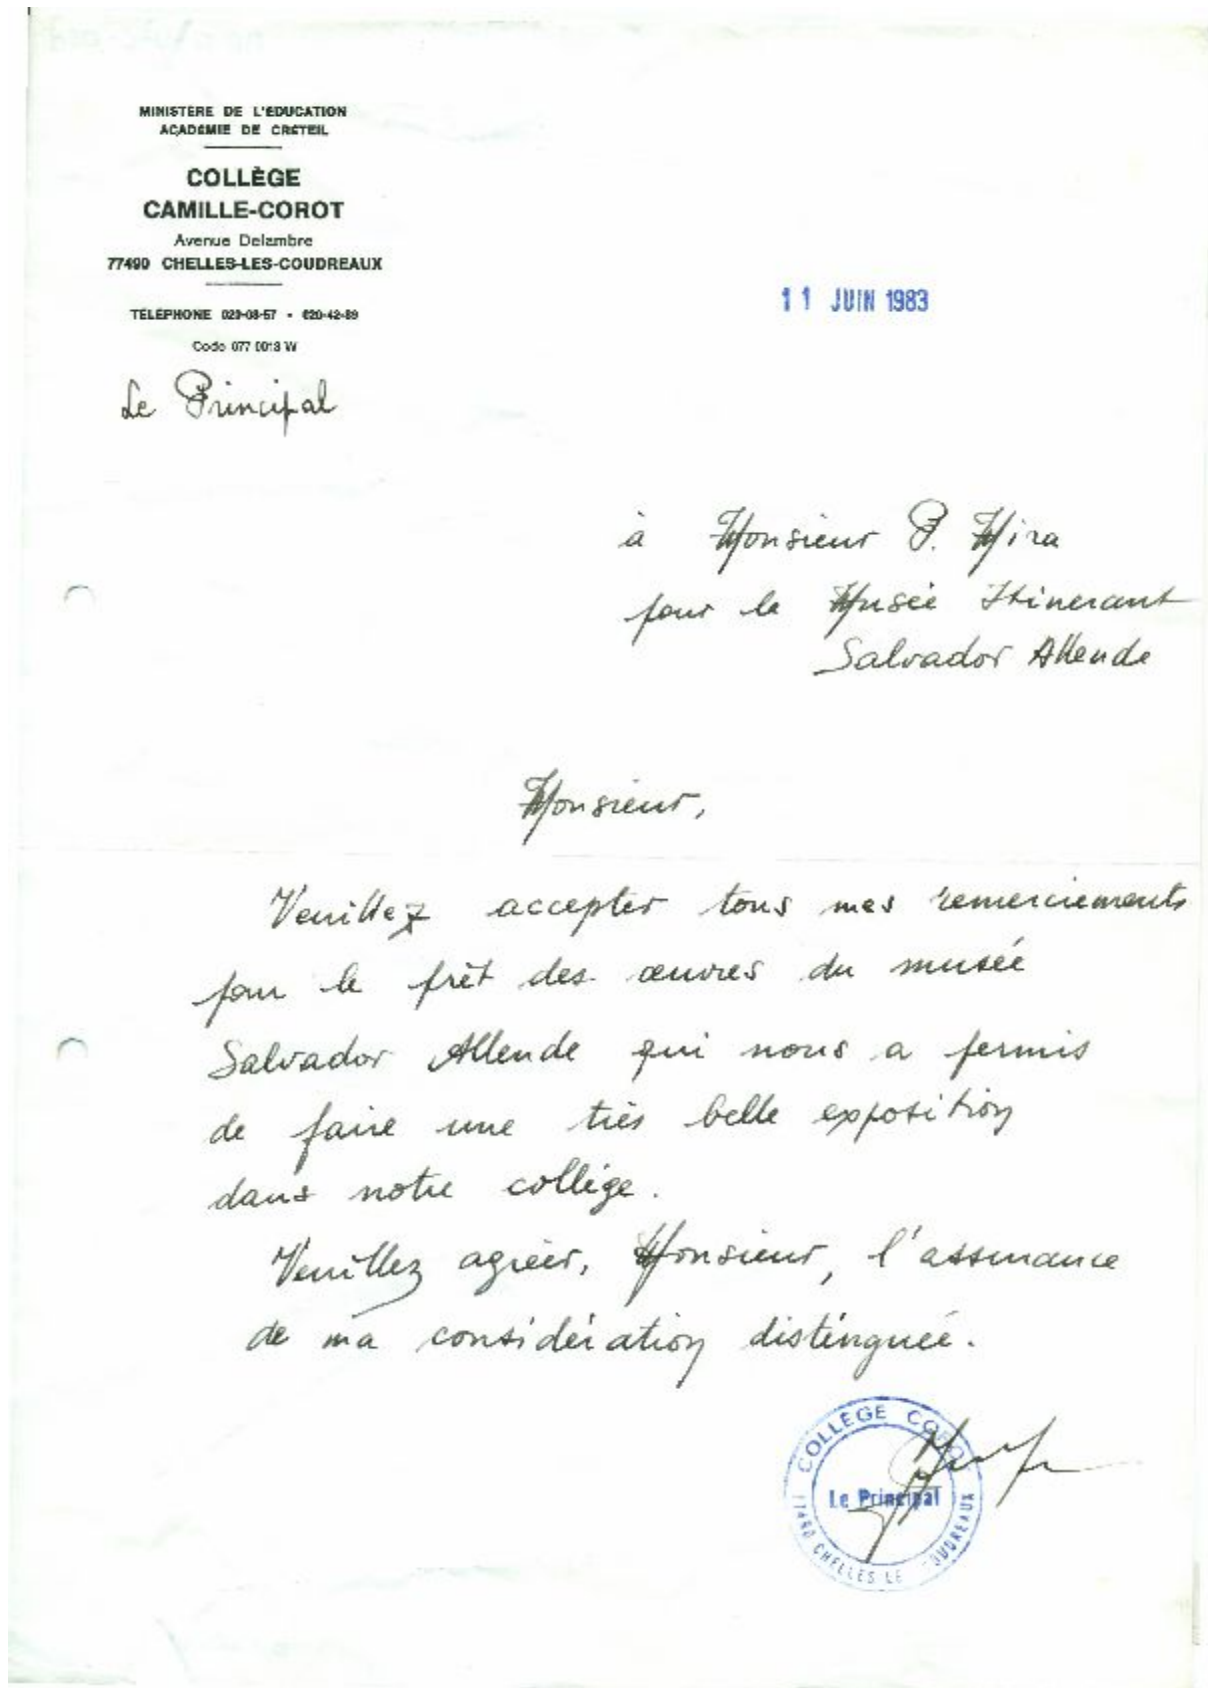 MINISTÈRE DE L'EDUCATION
ACADÉMIE DE CRÉTEIL
COLLÈGE
CAMILLE-COROT
Avenue Delambre
77490 CHELLES-LES-COUDREAUX
TÉLÉPHONE 020-08-57 - 020-42-89
Code 077 0018 W
Le Principal
11 JUIN 1983
à Monsieur P. Mira
pour le Musée Itinerant
Salvador Allende
Monsieur,
Veuillez accepter tous mes remerciements
pour le prêt des œuvres du musée
Salvador Allende qui nous a permis
de faire une très belle exposition
dans notre collège.
Veuillez agréer, Monsieur, l'assurance
de ma considération distinguée.
COLLÈGE COROT
Le Principal
CHELLES